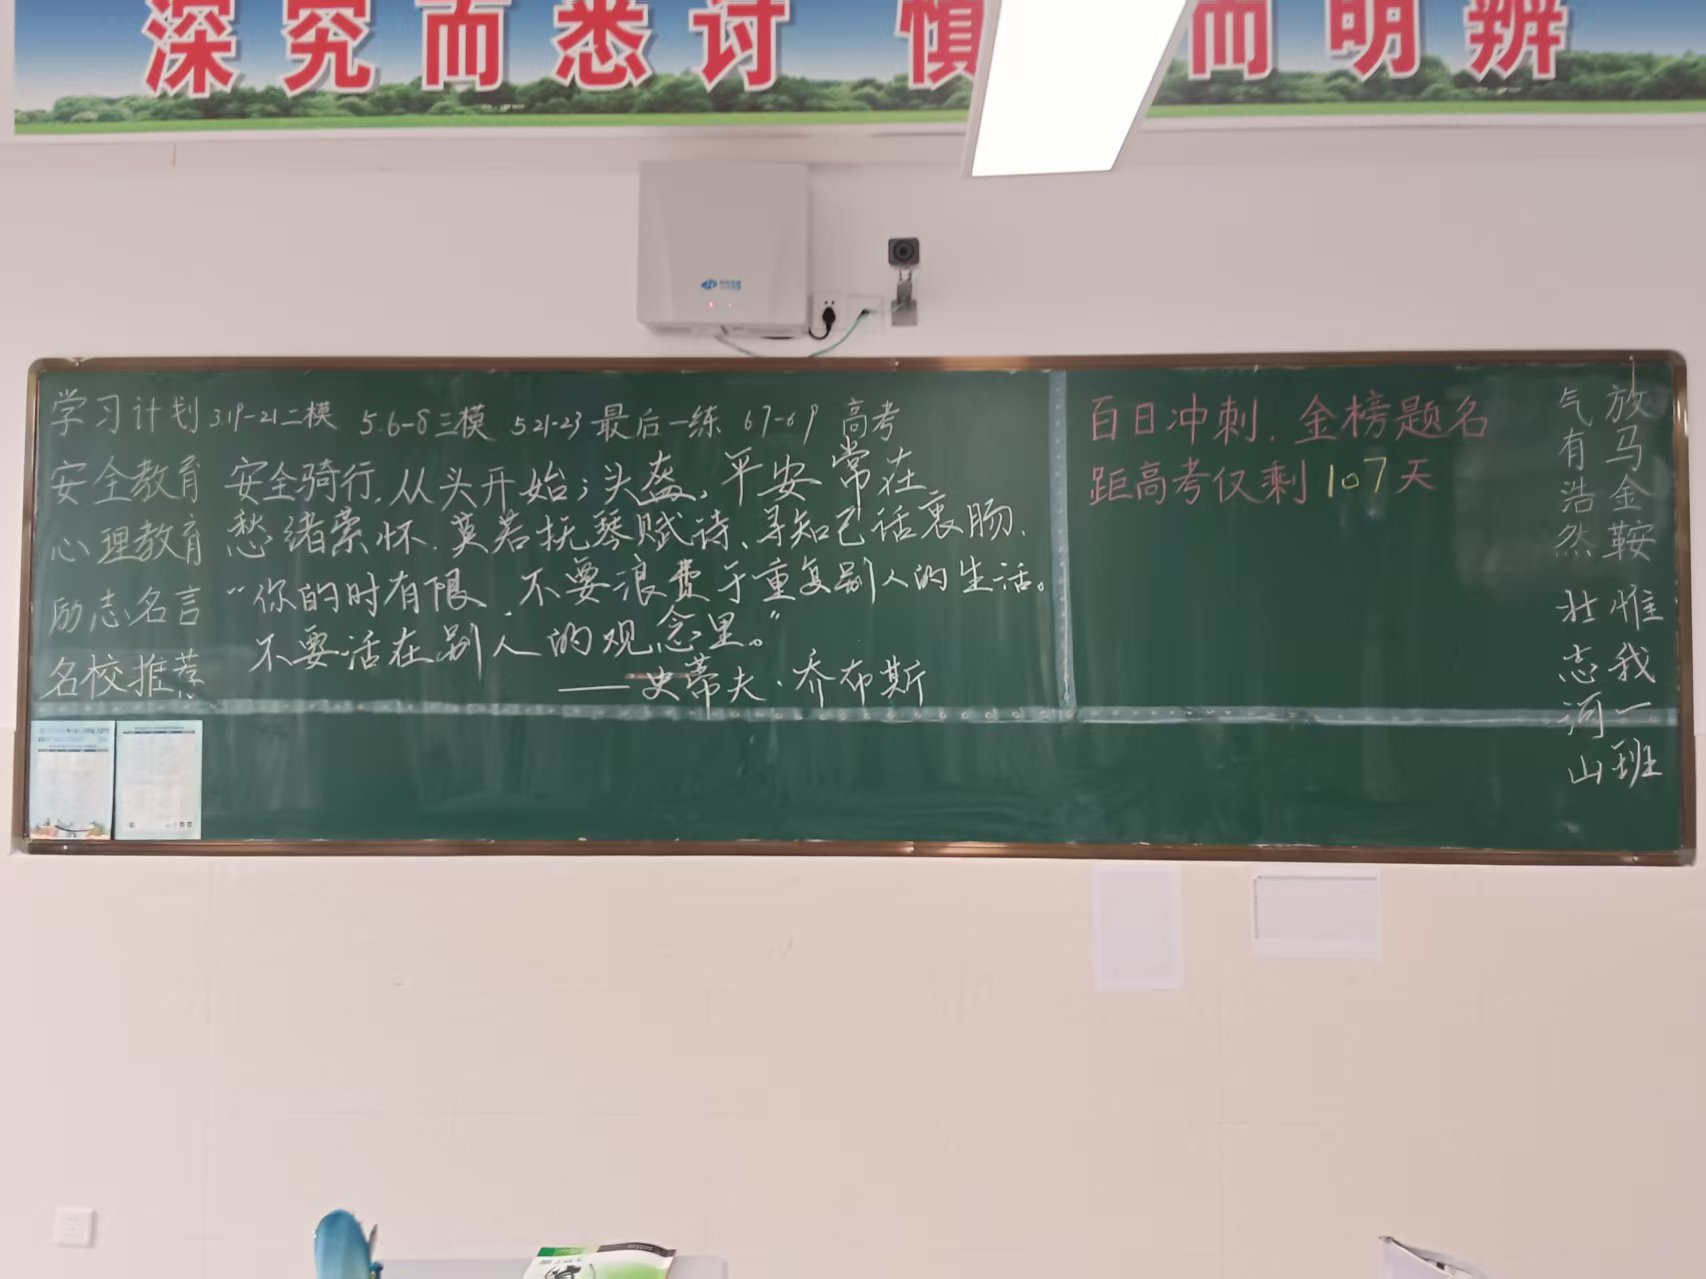 深究而悉讨 慎 而明辨
学习计划 3.19-21二模 5.6-8三模 5.21-23最后一练 6.7-6.9 高考
安全教育 安全骑行,从头开始;头盔,平安常在
心理教育 愁绪萦怀,莫若抚琴赋诗、寻知己话衷肠.
励志名言 “你的时有限,不要浪费于重复别人的生活。
不要活在别人的观念里。”
名校推荐
——史蒂夫·乔布斯
百日冲刺,金榜题名
距高考仅剩107天
放马金鞍 惟我一班
气有浩然 壮志河山